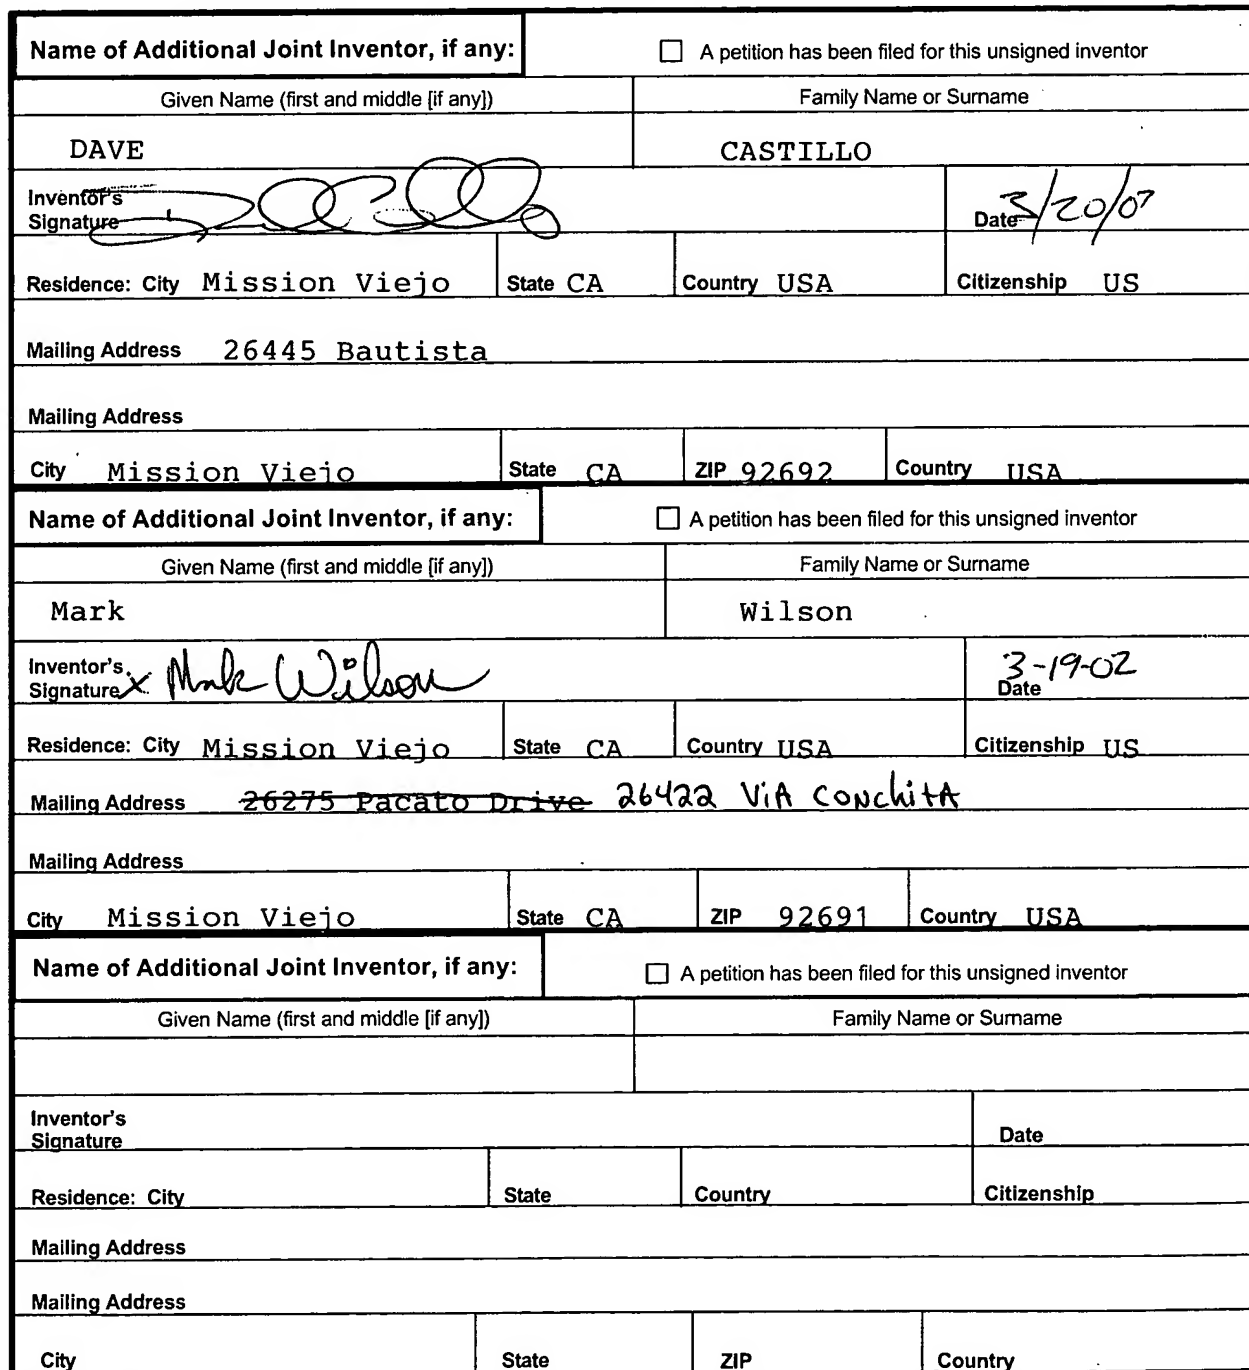 Name of Additional Joint Inventor, if any: ☐ A petition has been filed for this unsigned inventor
Given Name (first and middle [if any]) Family Name or Surname
DAVE CASTILLO
Inventor's
Signature Date 3/20/02
Residence: City Mission Viejo State CA Country USA Citizenship US
Mailing Address 26445 Bautista
Mailing Address
City Mission Viejo State CA ZIP 92692 Country USA
Name of Additional Joint Inventor, if any: ☐ A petition has been filed for this unsigned inventor
Given Name (first and middle [if any]) Family Name or Surname
Mark Wilson
Inventor's
Signature X Mark Wilson Date 3-19-02
Residence: City Mission Viejo State CA Country USA Citizenship US
Mailing Address 26275 Pacato Drive 26422 ViA CONchitA
Mailing Address
City Mission Viejo State CA ZIP 92691 Country USA
Name of Additional Joint Inventor, if any: ☐ A petition has been filed for this unsigned inventor
Given Name (first and middle [if any]) Family Name or Surname
Inventor's
Signature Date
Residence: City State Country Citizenship
Mailing Address
Mailing Address
City State ZIP Country